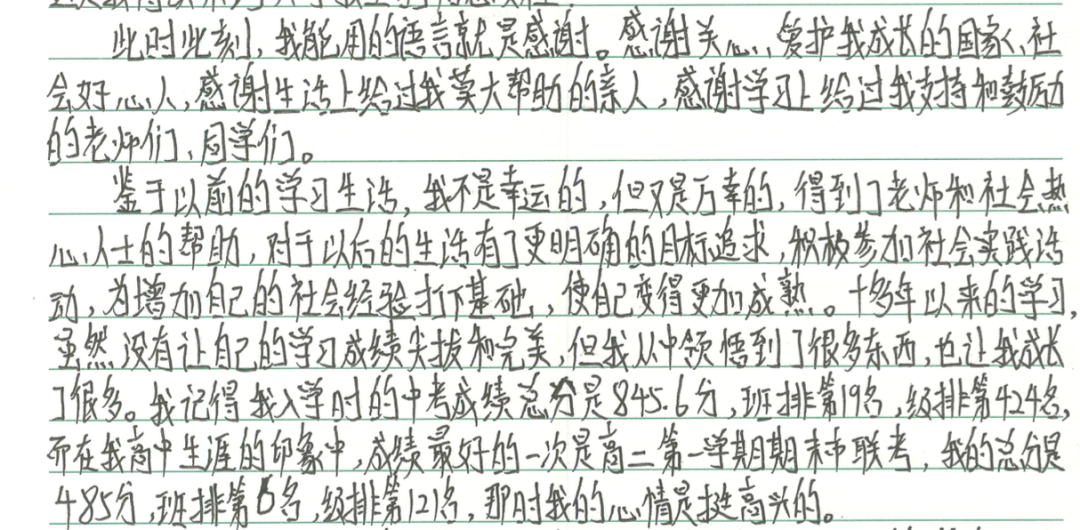 此时此刻，我能用的语言就是感谢。感谢关心、爱护我成长的国家、社
会好心人，感谢生活上给过我莫大帮助的亲人，感谢学习上给过我支持和鼓励
的老师们、同学们。
鉴于以前的学习生活，我不是幸运的，但又是万幸的，得到了老师和社会热
心人士的帮助，对于以后的生活有了更明确的目标追求，积极参加社会实践活
动，为增加自己的社会经验打下基础，使自己变得更加成熟。十多年以来的学习，
虽然没有让自己的学习成绩尖拔和完美，但我从中领悟到了很多东西，也让我成长
了很多。我记得我入学时的中考成绩总分是845.6分，班排第19名，级排第424名，
而在我高中生涯的印象中，成绩最好的一次是高二第一学期期末市联考，我的总分是
485分，班排第6名，级排第121名，那时我的心情是挺高兴的。